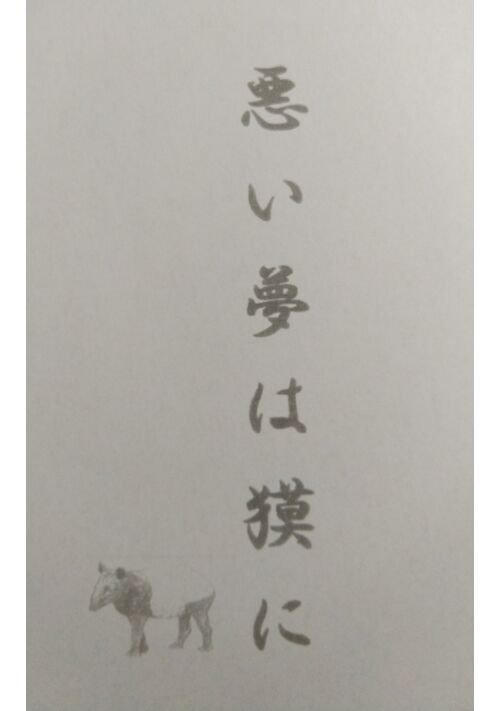 悪い夢は獏に